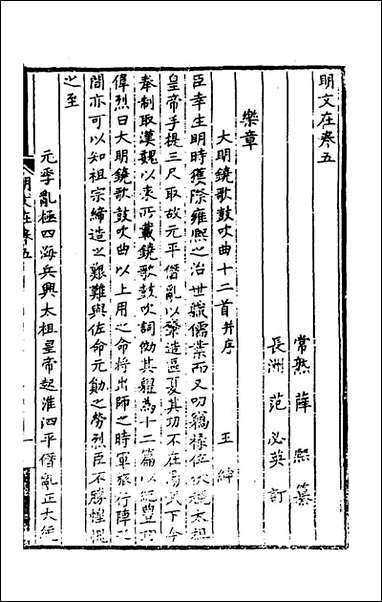 明文在卷五
常熟 薛熙 纂
長洲 范必英 訂
樂章
大明鐃歌鼓吹曲十二首并序 王紳
臣幸生明時獲際雍熙之治世職儒業而又叨竊祿位伏覩太祖
皇帝手提三尺取故元平僭亂以肇造區夏其功不在湯武下今
奉制取漢魏以來所載鐃歌鼓吹詞倣其體為十二篇以紀豐功
偉烈曰大明鐃歌鼓吹曲以上用之命將出師之時軍旅行陣之
間亦可以知祖宗締造之艱難與佐命元勳之勞烈臣不勝惶
之至
元季亂極四海兵興太祖皇帝起淮泗平僭亂正大統
明文在卷五
一